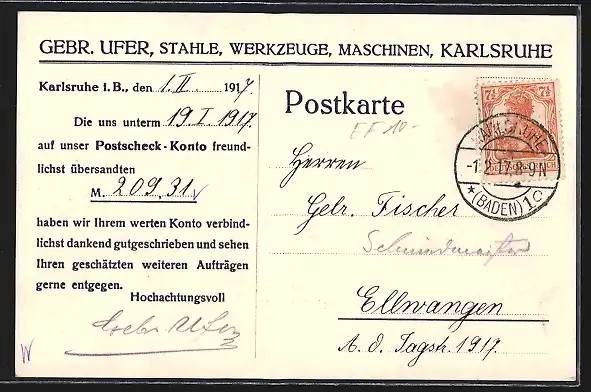 GEBR. UFER, STAHLE, WERKZEUGE, MASCHINEN, KARLSRUHE
Karlsruhe i. B., den 1. II. 1917.
Die uns unterm 19 I 1917.
auf unser Postscheck-Konto freund-
lichst übersandten
M. 209.31
haben wir Ihrem werten Konto verbind-
lichst dankend gutgeschrieben und sehen
Ihren geschätzten weiteren Aufträgen
gerne entgegen.
Hochachtungsvoll
Gebr Ufer
Postkarte
EF 10.-
Herren
Gebr. Fischer
Schmiedmeister
Ellwangen
A. d. Jagst. 1917.
7½ 7½
KARLSRUHE
-1.2.17. 8-9N
★ (BADEN) 1